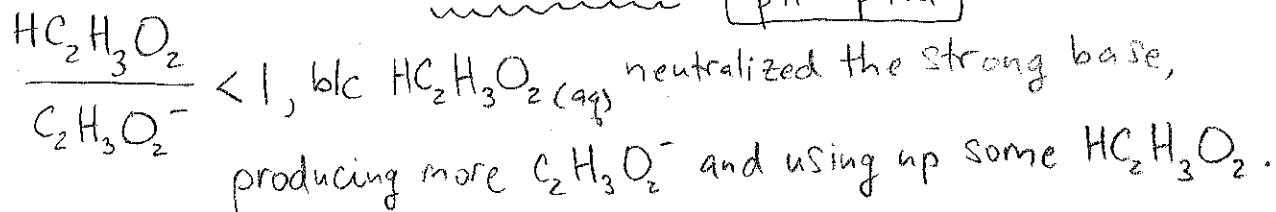 HC₂H₃O₂
───── < 1, b/c HC₂H₃O₂(aq) neutralized the strong base,
C₂H₃O₂⁻
producing more C₂H₃O₂⁻ and using up some HC₂H₃O₂.